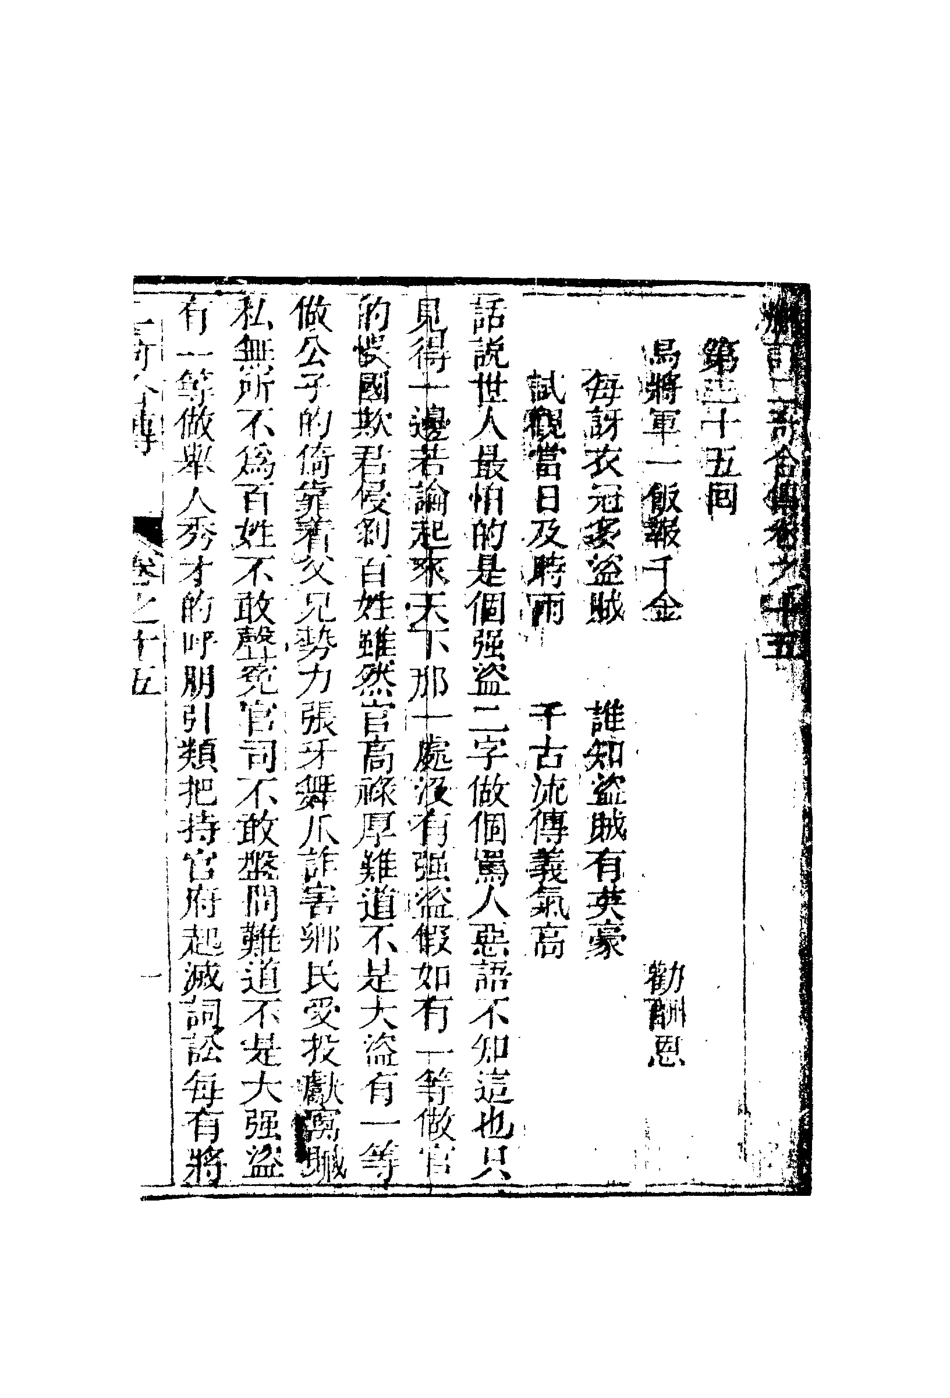 刪訂二奇合傳卷之十五
第三十五回
烏將軍一飯報千金 勸酬恩
每訝衣冠多盜賊 誰知盜賊有英豪
試觀當日及時雨 千古流傳義氣高
話說世人最怕的是個强盜二字做個罵人惡語不知這也只
見得一邊若論起來天下那一處沒有强盜假如有一等做官
的悞國欺君侵剝百姓雖然官高祿厚難道不是大盜有一等
做公子的倚靠着父兄勢力張牙舞爪詐害鄉民受投獻窩贓
私無所不爲百姓不敢聲冤官司不敢盤問難道不是大强盜
有一等做舉人秀才的呼朋引類把持官府起滅詞訟每有將
二奇合傳 卷之十五 一